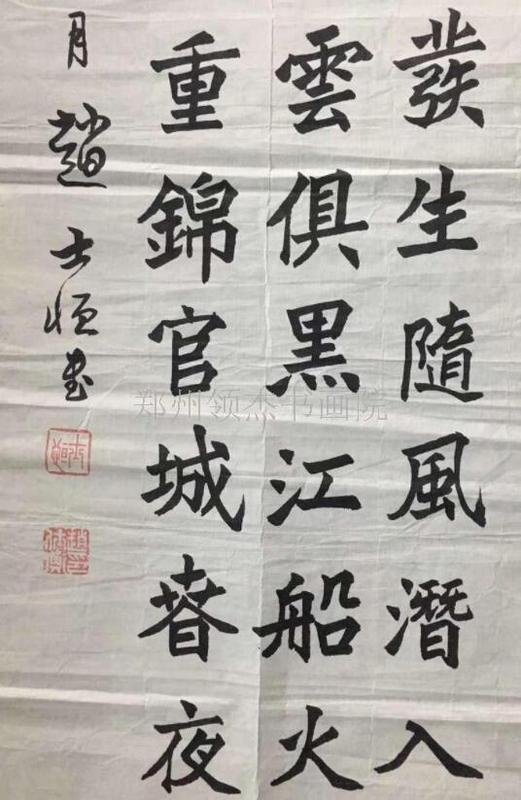 發生隨風潛入
雲俱黑江船火
重錦官城春夜
月 趙士恒書
郑州领杰书画院